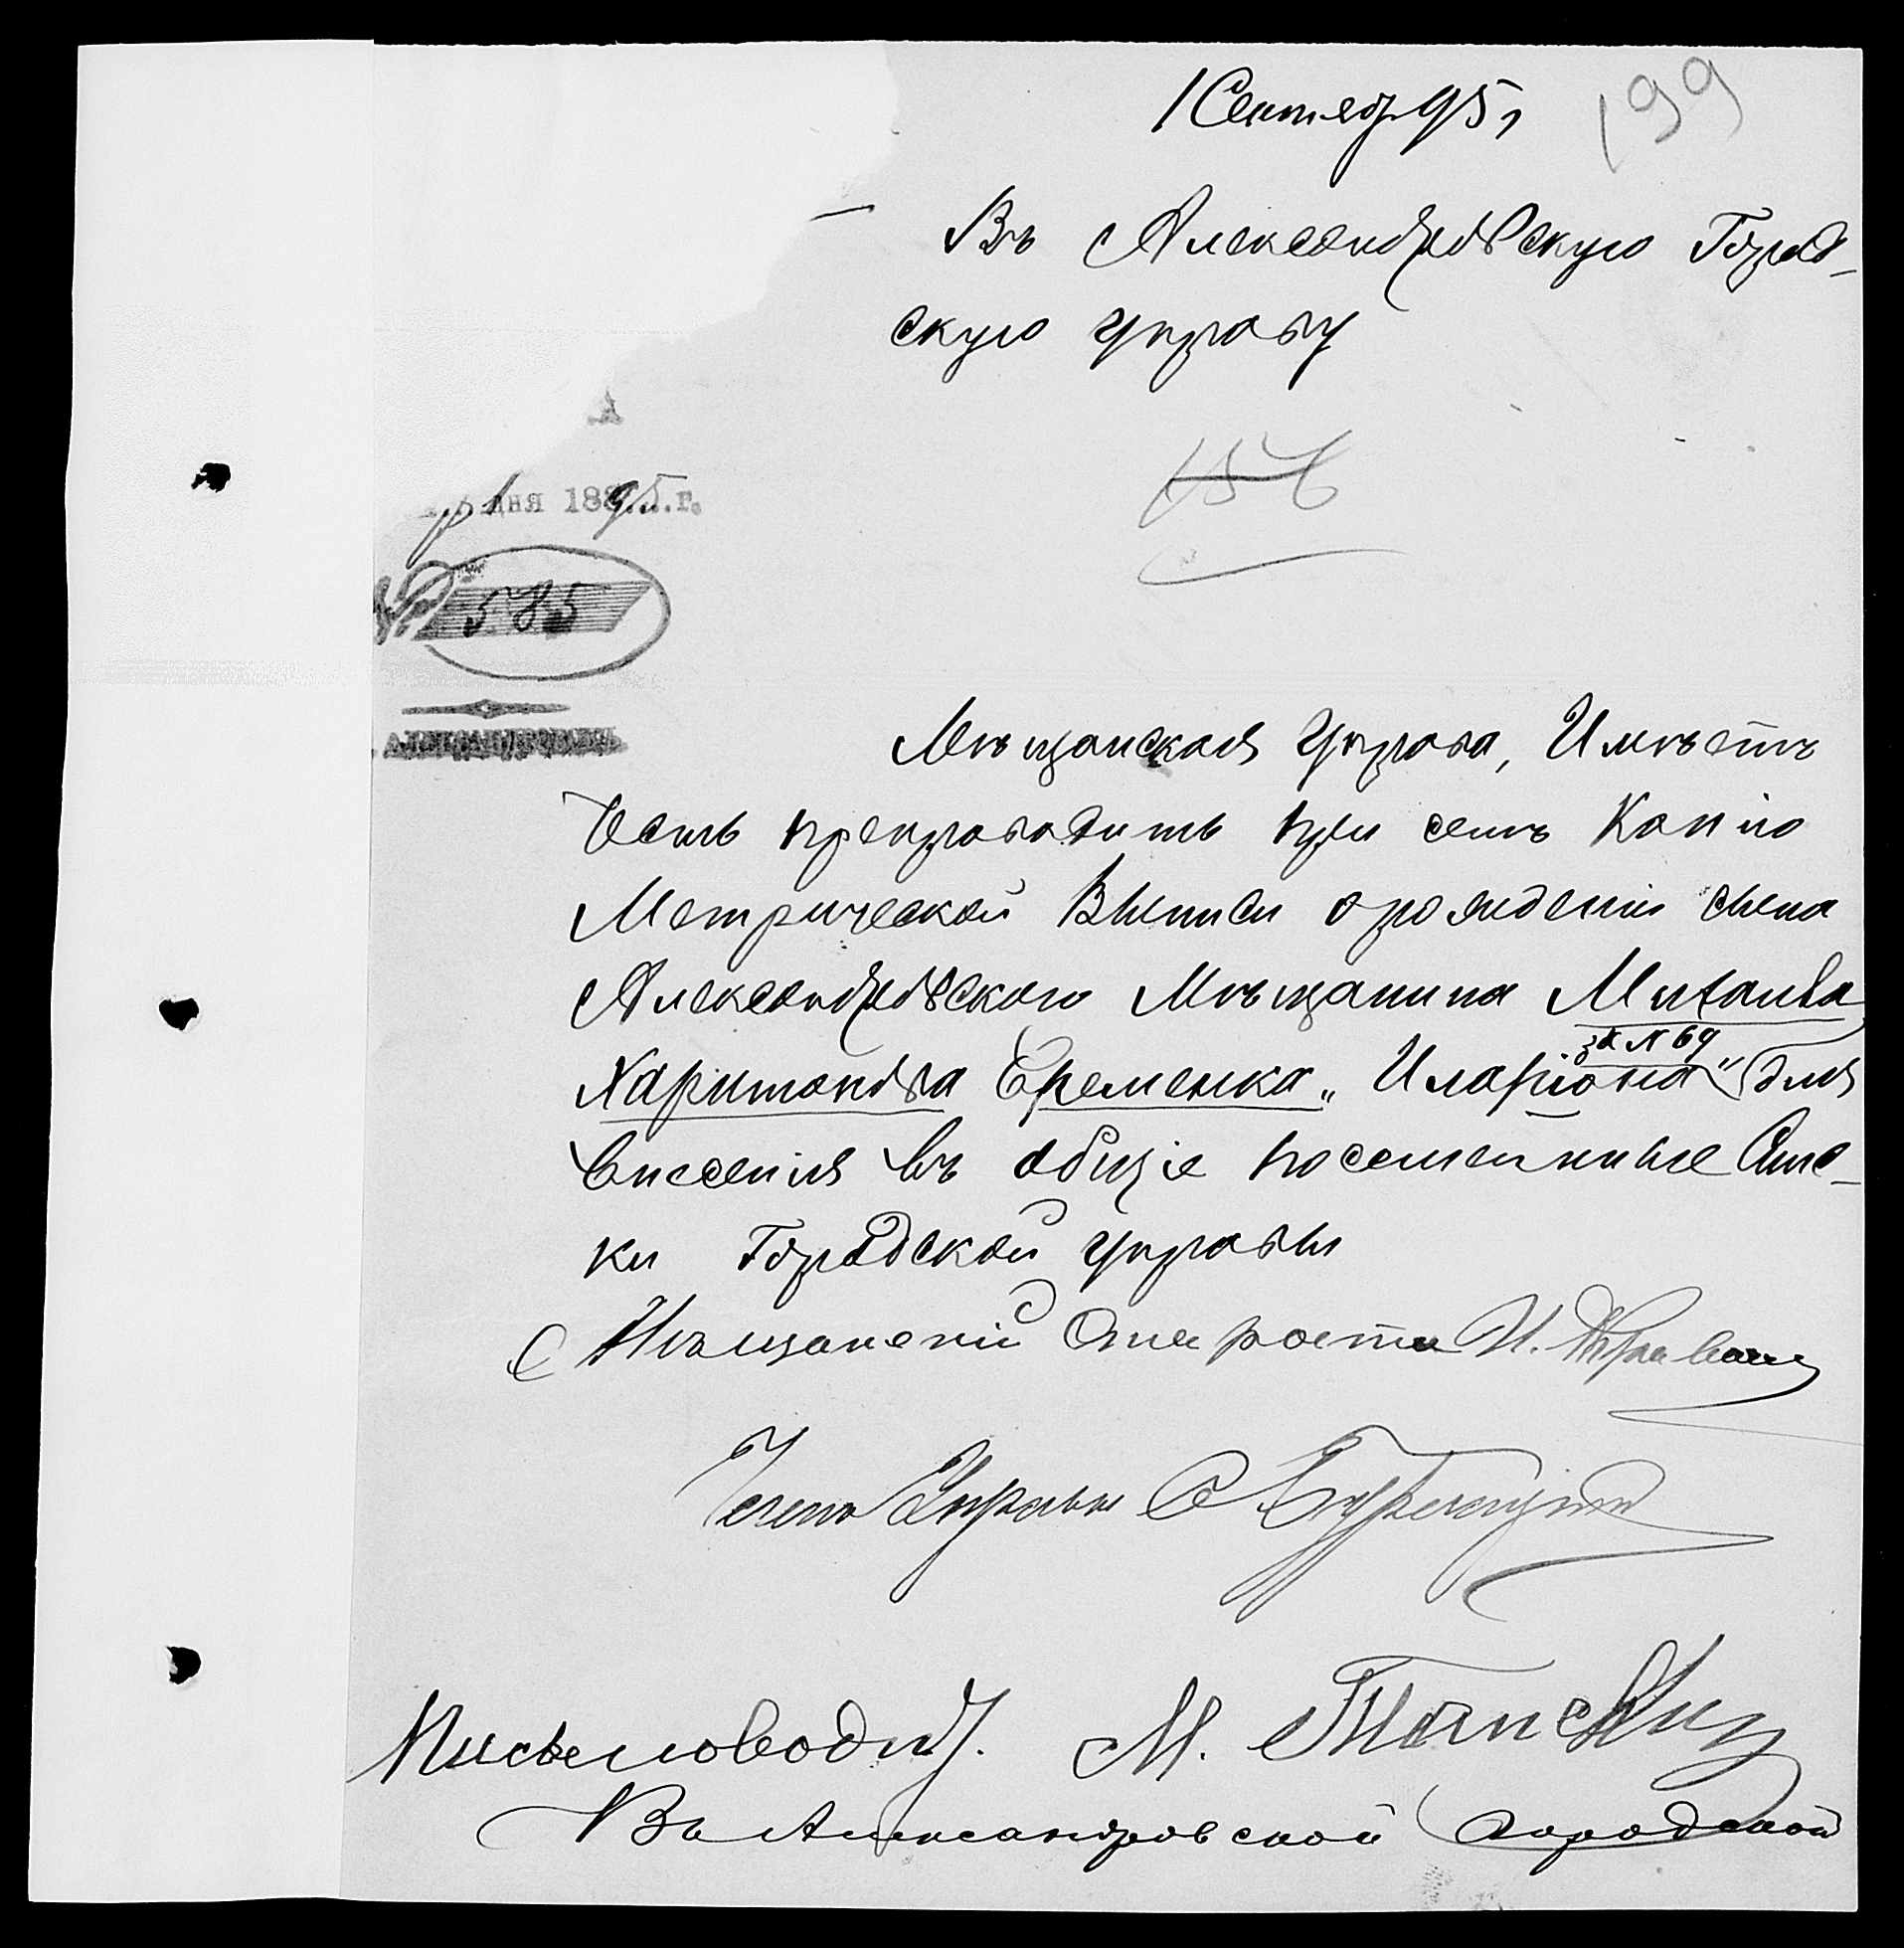 1 Сентяб 95 г
199
Въ Александровскую Город-
скую управу
156
дня 1895 г.
№ 585
Мѣщанская Управа, Имѣетъ
Честь препроводить при семъ Копію
Метрической Выписи о рожденіи сына
Александровскаго Мѣщанина Михаила
за № 69
Харитонова Еременка „Иларіона“ для
внесенія въ общіе посемейные Спис-
ки Городской управы
Мѣщанскій Староста И.
Членъ Управы С
Письмоводит. М.
Въ Александровской Городской